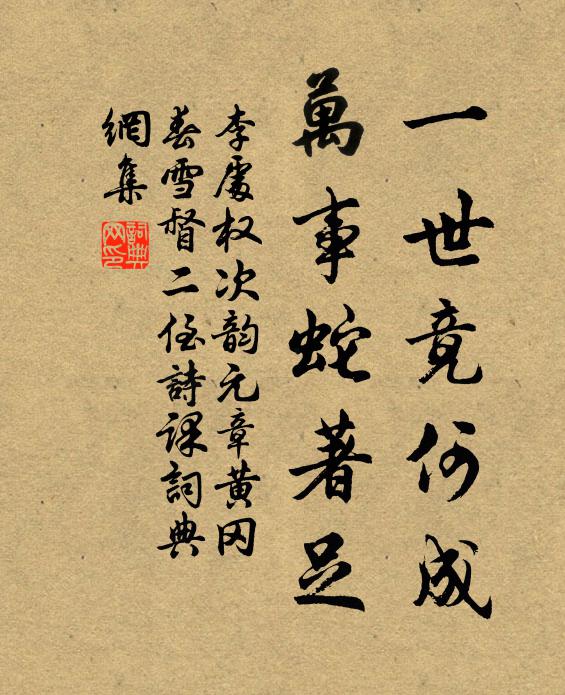 一世竟何成
萬事蛇著足
李處权次韵元章黄冈
春雪督二侄詩課詞典
網集
詞典网印